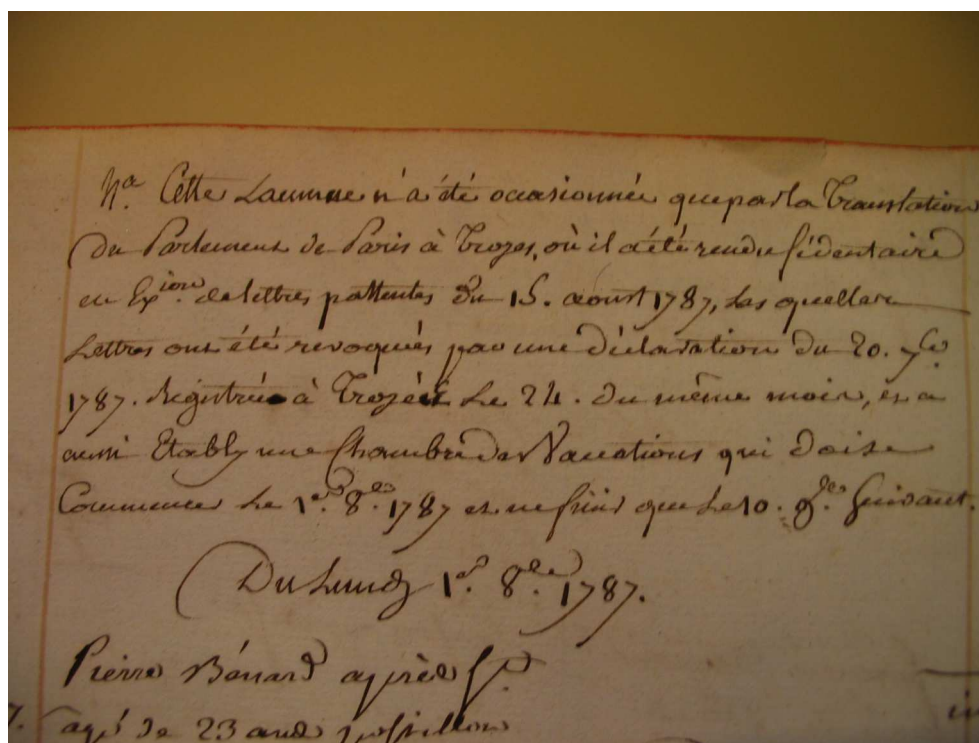 Na. Cette Lacunne n'a été occasionnée que par la Translation
du Parlement de Paris à Troyes, où il a été rendu sédentaire
en Exion. de lettres pattentes du 15. aoust 1787, Les quelles
Lettres ont été revoquées par une déclaration du 20. 7bre
1787. Registrée à Troyes Le 24. du même mois, et a
aussi Etably une Chambre des Vacations qui doit se
Commencer Le 1er. 8bre. 1787 et ne finir que Le 10. 9bre. suivant.
Du Lundy 1er. 8bre. 1787.
Pierre Bénard après St.
7. agé de 23 ans postillon